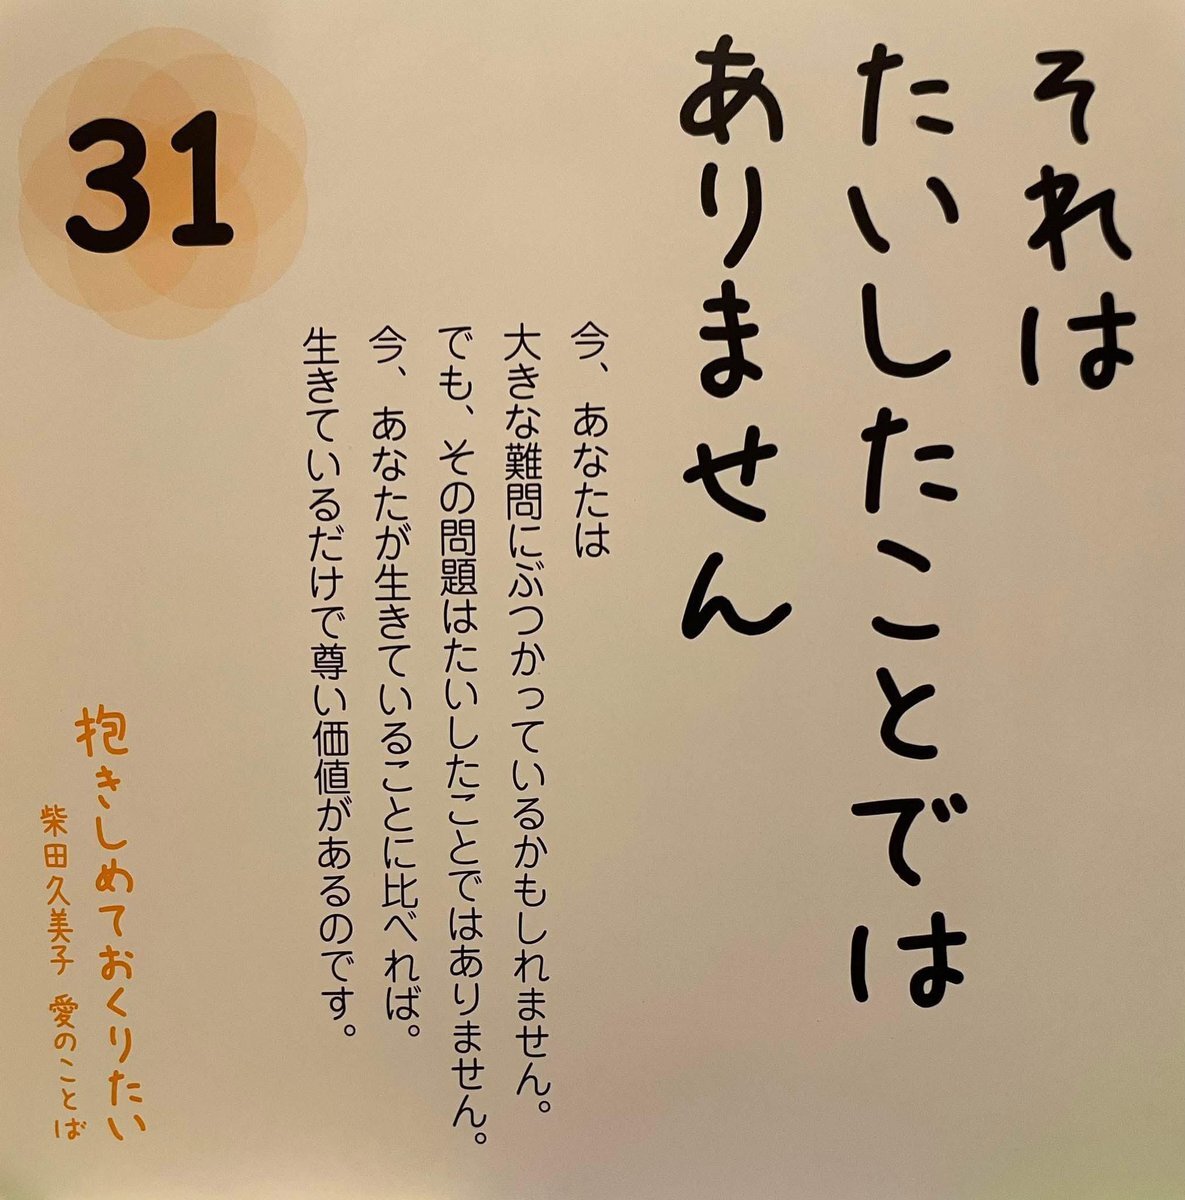 それは
たいしたことでは
ありません
今、あなたは
大きな難問にぶつかっているかもしれません。
でも、その問題はたいしたことではありません。
今、あなたが生きていることに比べれば。
生きているだけで尊い価値があるのです。
31
抱きしめておくりたい
柴田久美子 愛のことば